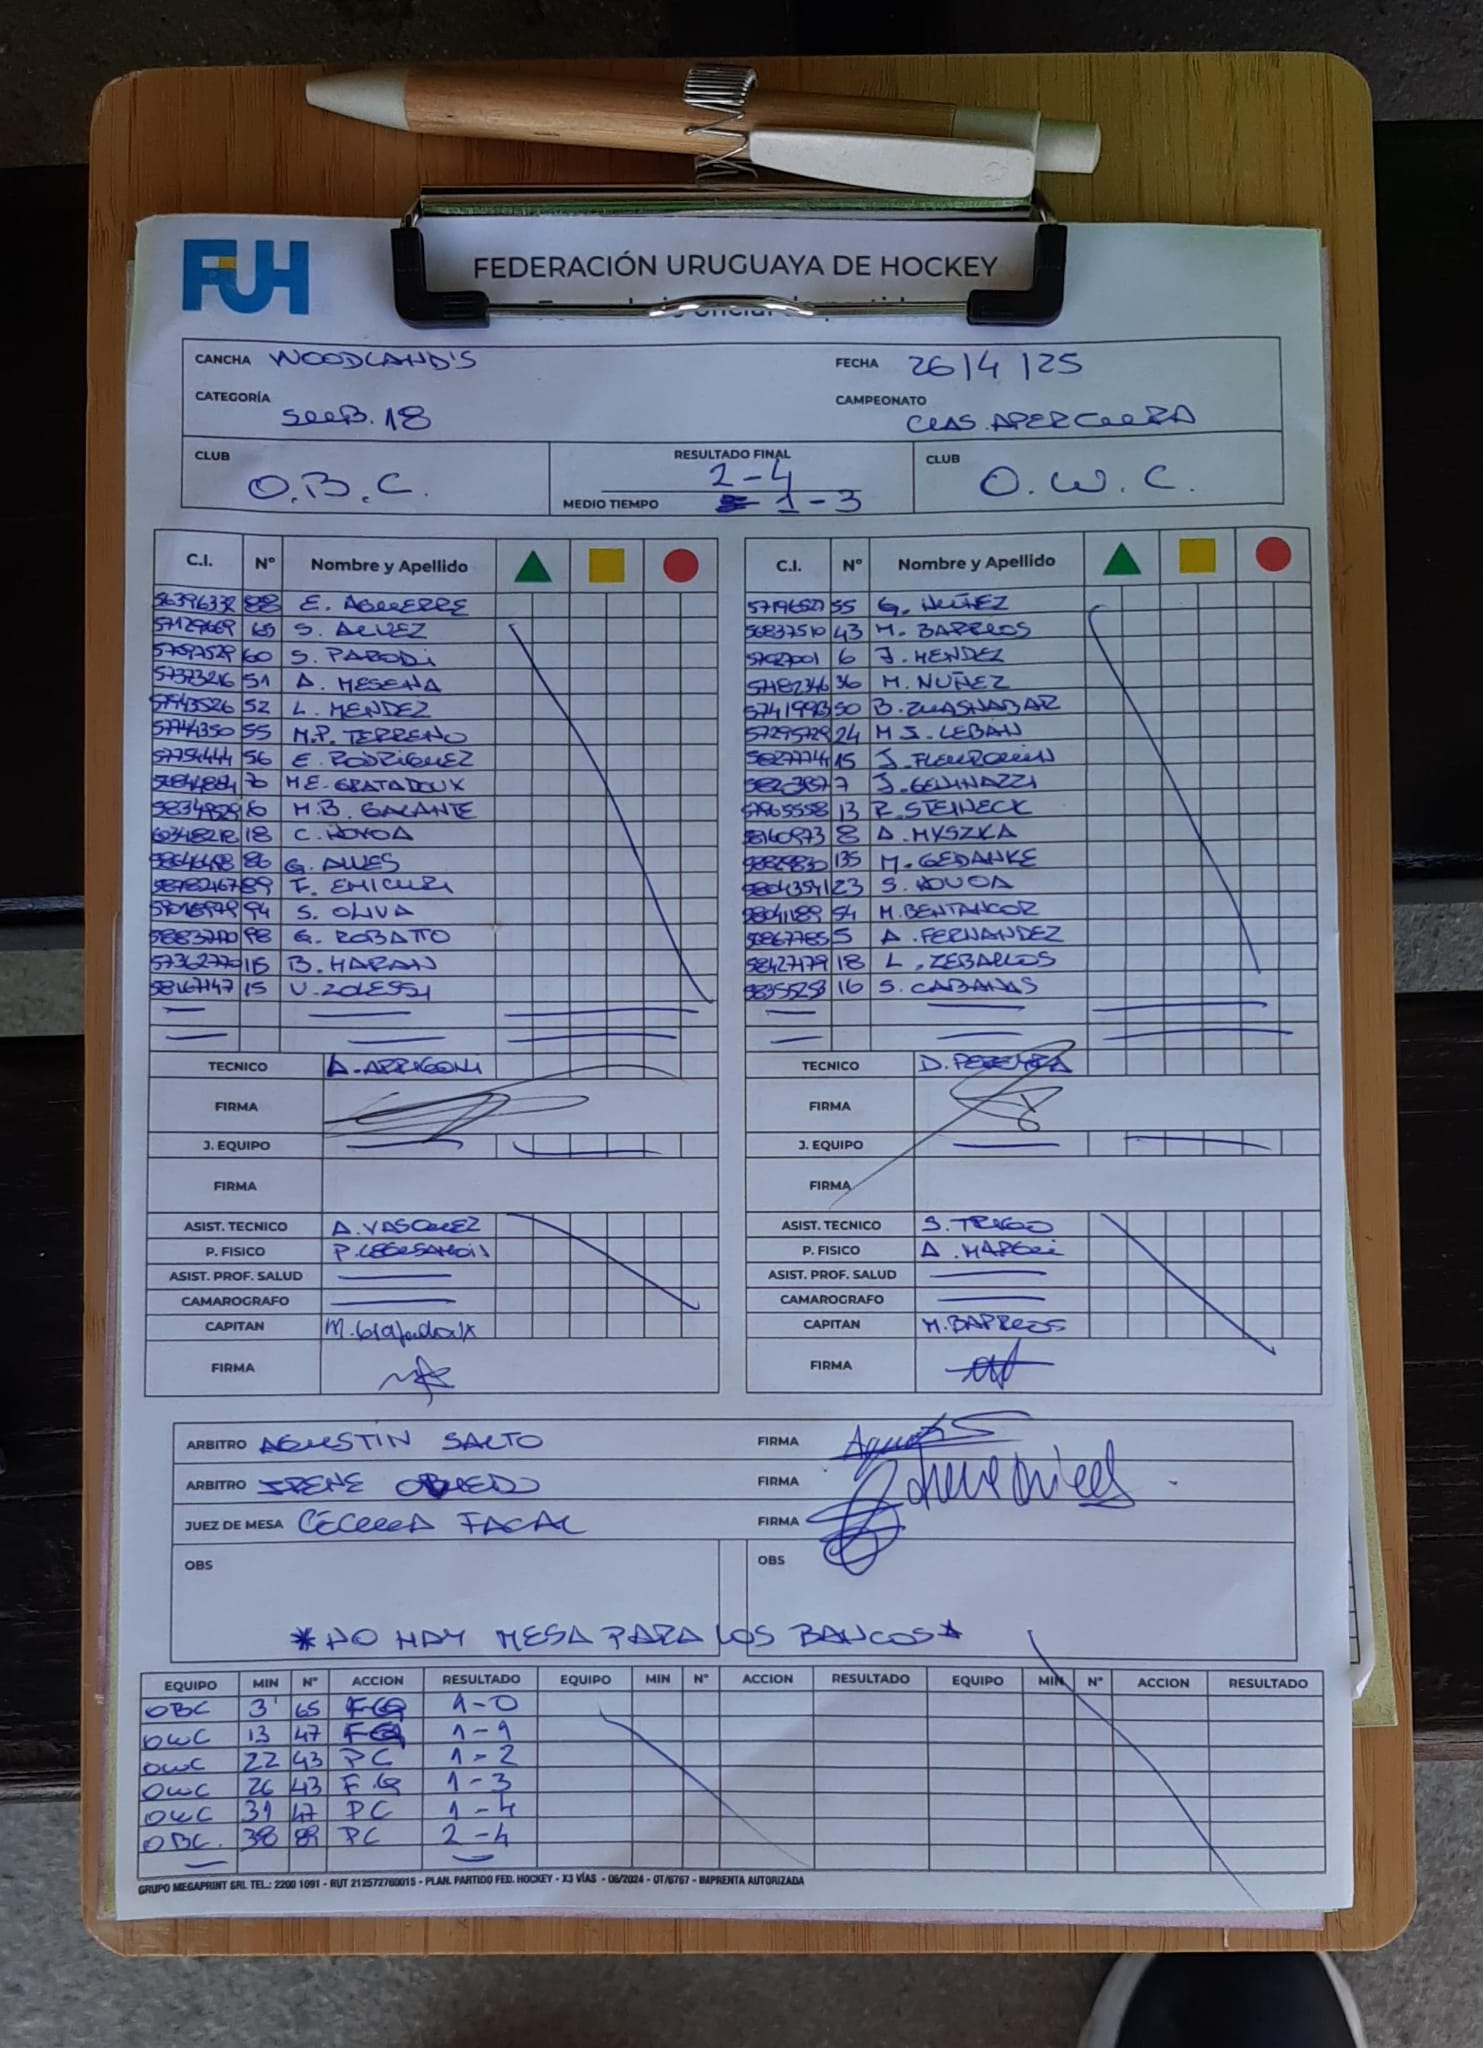 FUH
FEDERACIÓN URUGUAYA DE HOCKEY
CANCHA WOODLAND'S FECHA 26/4/25
CATEGORÍA SUB.18 CAMPEONATO CLAS. APERTURA
CLUB O.B.C. RESULTADO FINAL 2-4 CLUB O.W.C.
MEDIO TIEMPO 1-3
C.I. Nº Nombre y Apellido C.I. Nº Nombre y Apellido
88 E. AGUERRE 55 G. NUÑEZ
65 S. ALVEZ 56837510 43 M. BARRIOS
60 S. PARODI 6 J. MENDEZ
51 A. MESENA 57182346 36 M. NUÑEZ
57943526 52 L. MENDEZ 50 B. ZUASNABAR
57744350 55 M.P. TERRENO 57295729 24 M.S. LEBAN
57754444 56 E. RODRIGUEZ 15 J. FLEURQUIN
M.E. GRATADOUX 7 J. GEMINAZZI
M.B. GALANTE 57965558 13 R. STEINECK
60348218 18 C. NOVOA 58160973 8 A. MYSZKA
86 G. ALVES M. GEDANKE
58782467 89 F. EMICURI 23 S. NOVOA
94 S. OLIVA 58041189 54 M. BENTANCOR
98 G. ROBATTO 5 A. FERNANDEZ
B. HARAN 58427179 18 L. ZEBALLOS
58167147 15 V. ZOLESSI 58355253 16 S. CABANAS
TECNICO A. ARRIGONI TECNICO D. PEREYRA
FIRMA FIRMA
J. EQUIPO J. EQUIPO
FIRMA FIRMA
ASIST. TECNICO A. VASQUEZ ASIST. TECNICO S. TRIGO
P. FISICO P. FISICO
ASIST. PROF. SALUD ASIST. PROF. SALUD
CAMAROGRAFO CAMAROGRAFO
CAPITAN M. Gratadoux CAPITAN M. BARRIOS
FIRMA FIRMA
ARBITRO AGUSTIN SALTO FIRMA
ARBITRO IRENE OBUEDO FIRMA
JUEZ DE MESA CECILIA FACAL FIRMA
OBS OBS
*NO HAY MESA PARA LOS BANCOS*
EQUIPO MIN Nº ACCION RESULTADO EQUIPO MIN Nº ACCION RESULTADO EQUIPO MIN Nº ACCION RESULTADO
OBC 3' 65 FG 1-0
OWC 13 47 FG 1-1
OWC 22 43 PC 1-2
OWC 26 43 F.G 1-3
OWC 31 47 PC 1-4
OBC. 38 89 PC 2-4
GRUPO MEGAPRINT SRL TEL.: 2200 1091 - RUT 212572760015 - PLAN. PARTIDO FED. HOCKEY - X3 VÍAS - 06/2024 - OT/6767 - IMPRENTA AUTORIZADA